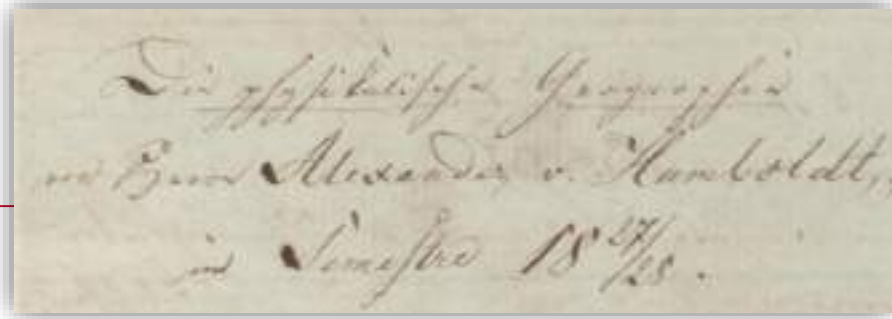 Die physikalische Geographie
von Herrn Alexander v. Humboldt,
im Semestre 18 27/28.